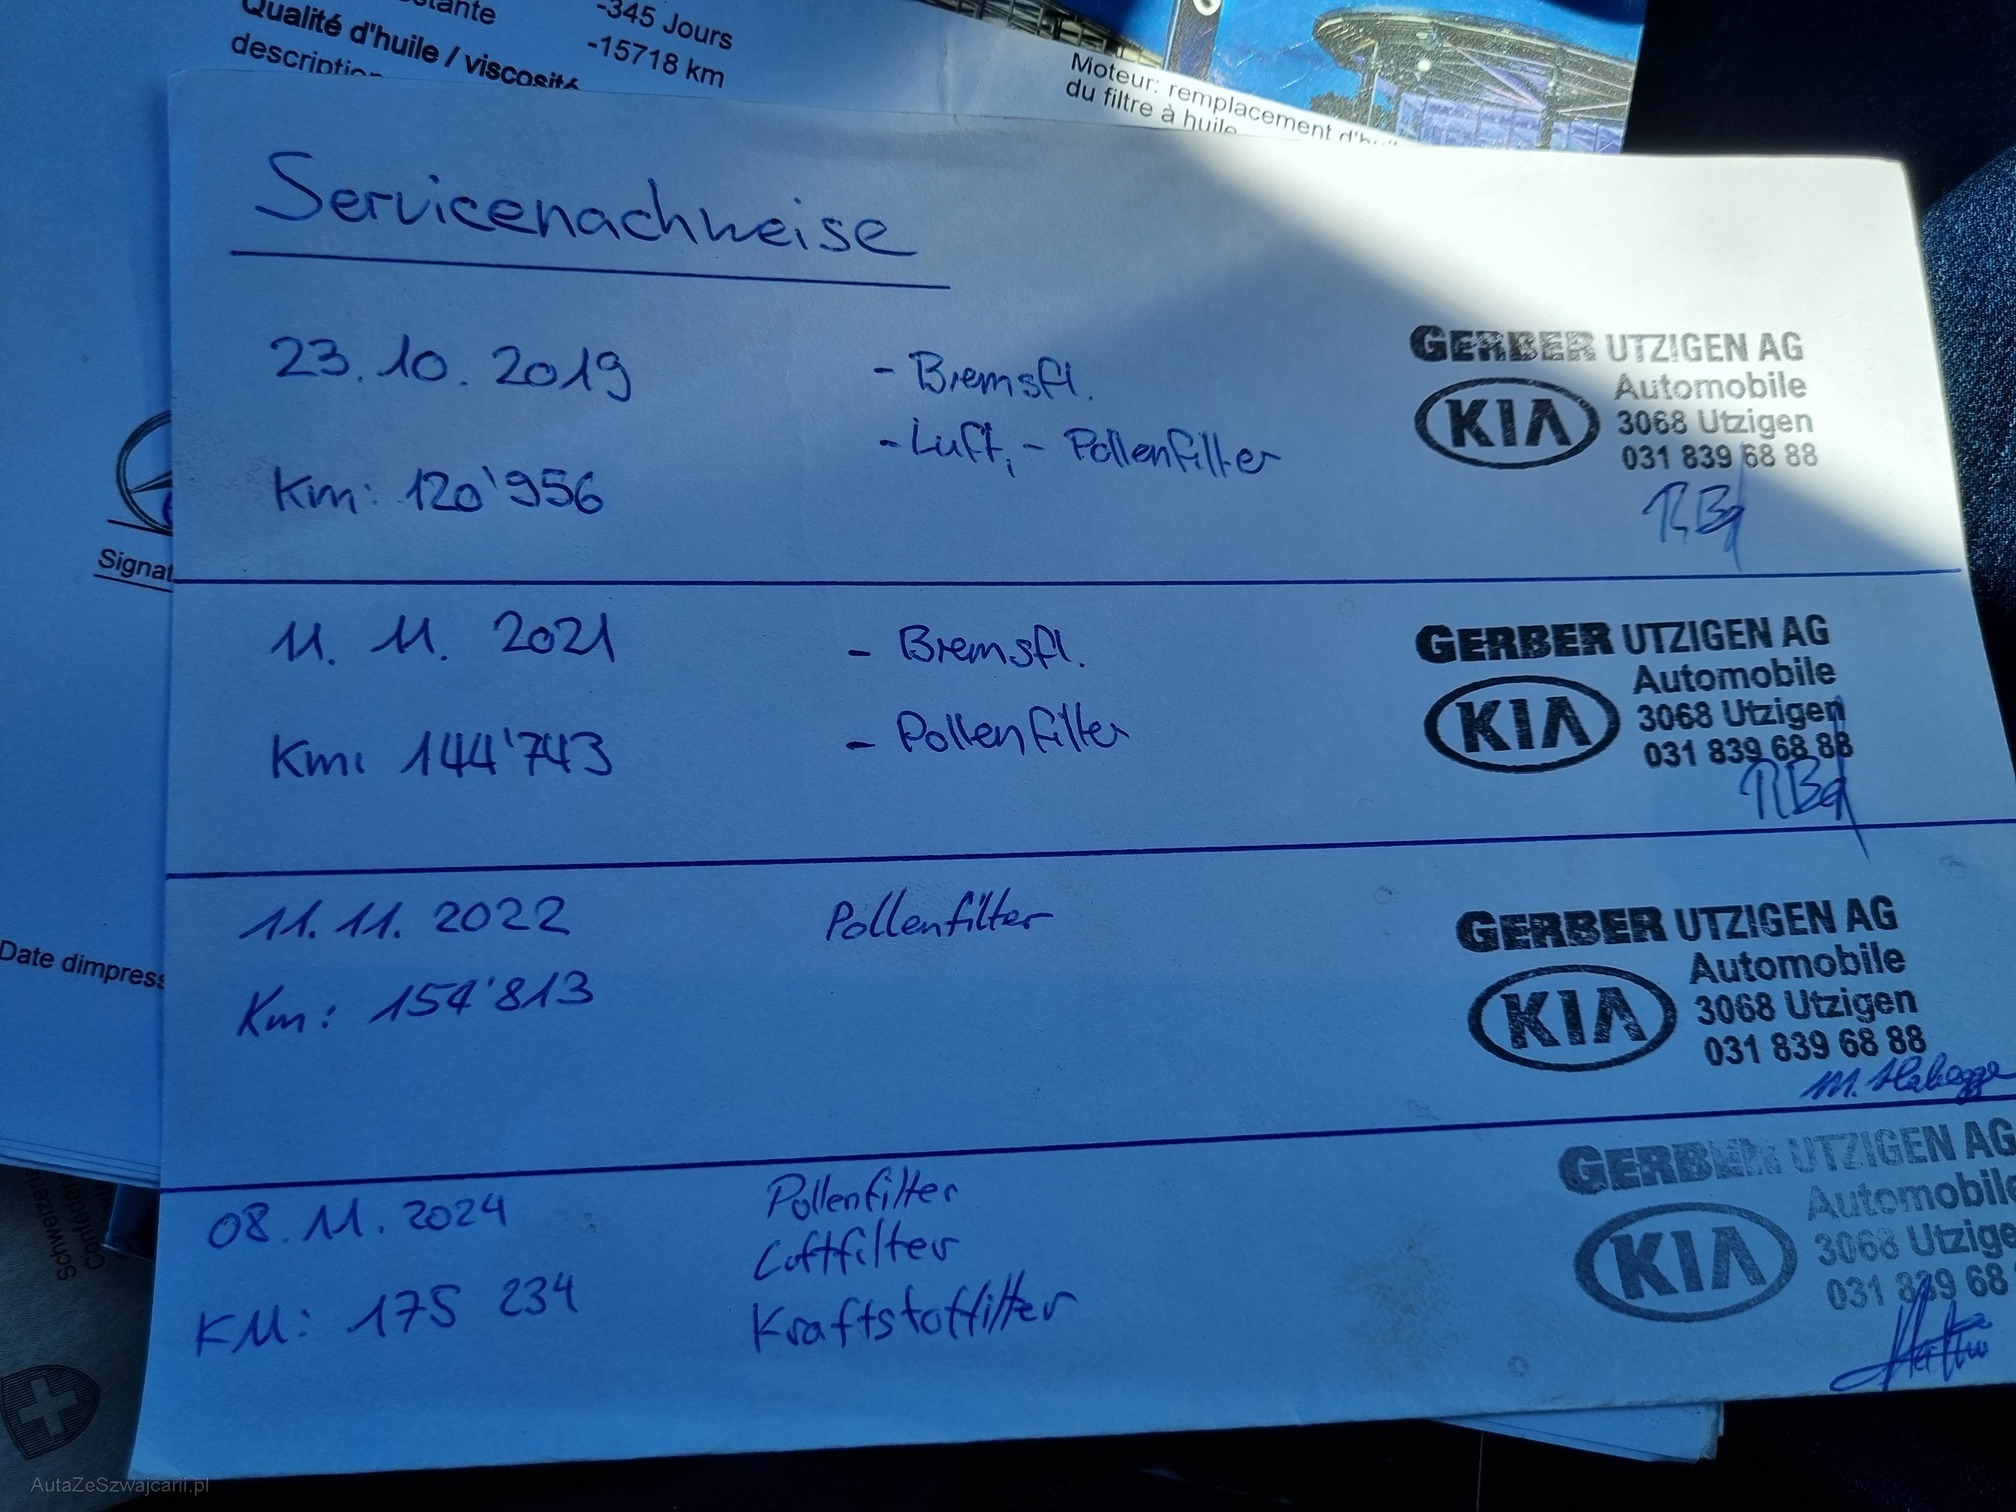 -345 Jours
Qualité d'huile / viscosité
-15718 km
description
Moteur: remplacement
du filtre à huile
Servicenachweise
23.10.2019
- Bremsfl.
- Luft, - Pollenfilter
Km: 120'956
GERBER UTZIGEN AG
Automobile
KIA
3068 Utzigen
031 839 68 88
Signat
11. 11. 2021
- Bremsfl.
Km: 144'743
- Pollenfilter
GERBER UTZIGEN AG
Automobile
KIA
3068 Utzigen
031 839 68 88
11.11.2022
Pollenfilter
Km: 154'813
GERBER UTZIGEN AG
Automobile
KIA
3068 Utzigen
031 839 68 88
Date dimpress
08.11.2024
Pollenfilter
Luftfilter
KM: 175 234
Kraftstoffilter
GERBER UTZIGEN AG
Automobile
KIA
3068 Utzige
031 839 68
AutaZeSzwajcarii.pl